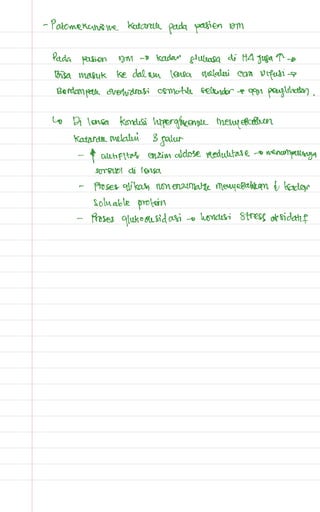 - Patomekanisme katarak pada pasien DM
Pada pasien DM → kadar glukosa di HA juga ↑ →
bisa masuk ke dalam lensa melalui cara difusi →
berdampak overhidrasi osmotik sekunder → ggn penglihatan.
↳ Di lensa kondisi hiperglikemik menyebabkan
katarak melalui 3 jalur
- ↑ aktifitas enzim aldose reduktase →
sorbitol di lensa
- Proses glikasi non enzimatik menyebabkan ↓ kadar
soluable protein
- Proses glukooksidasi → kondisi stress oksidatif